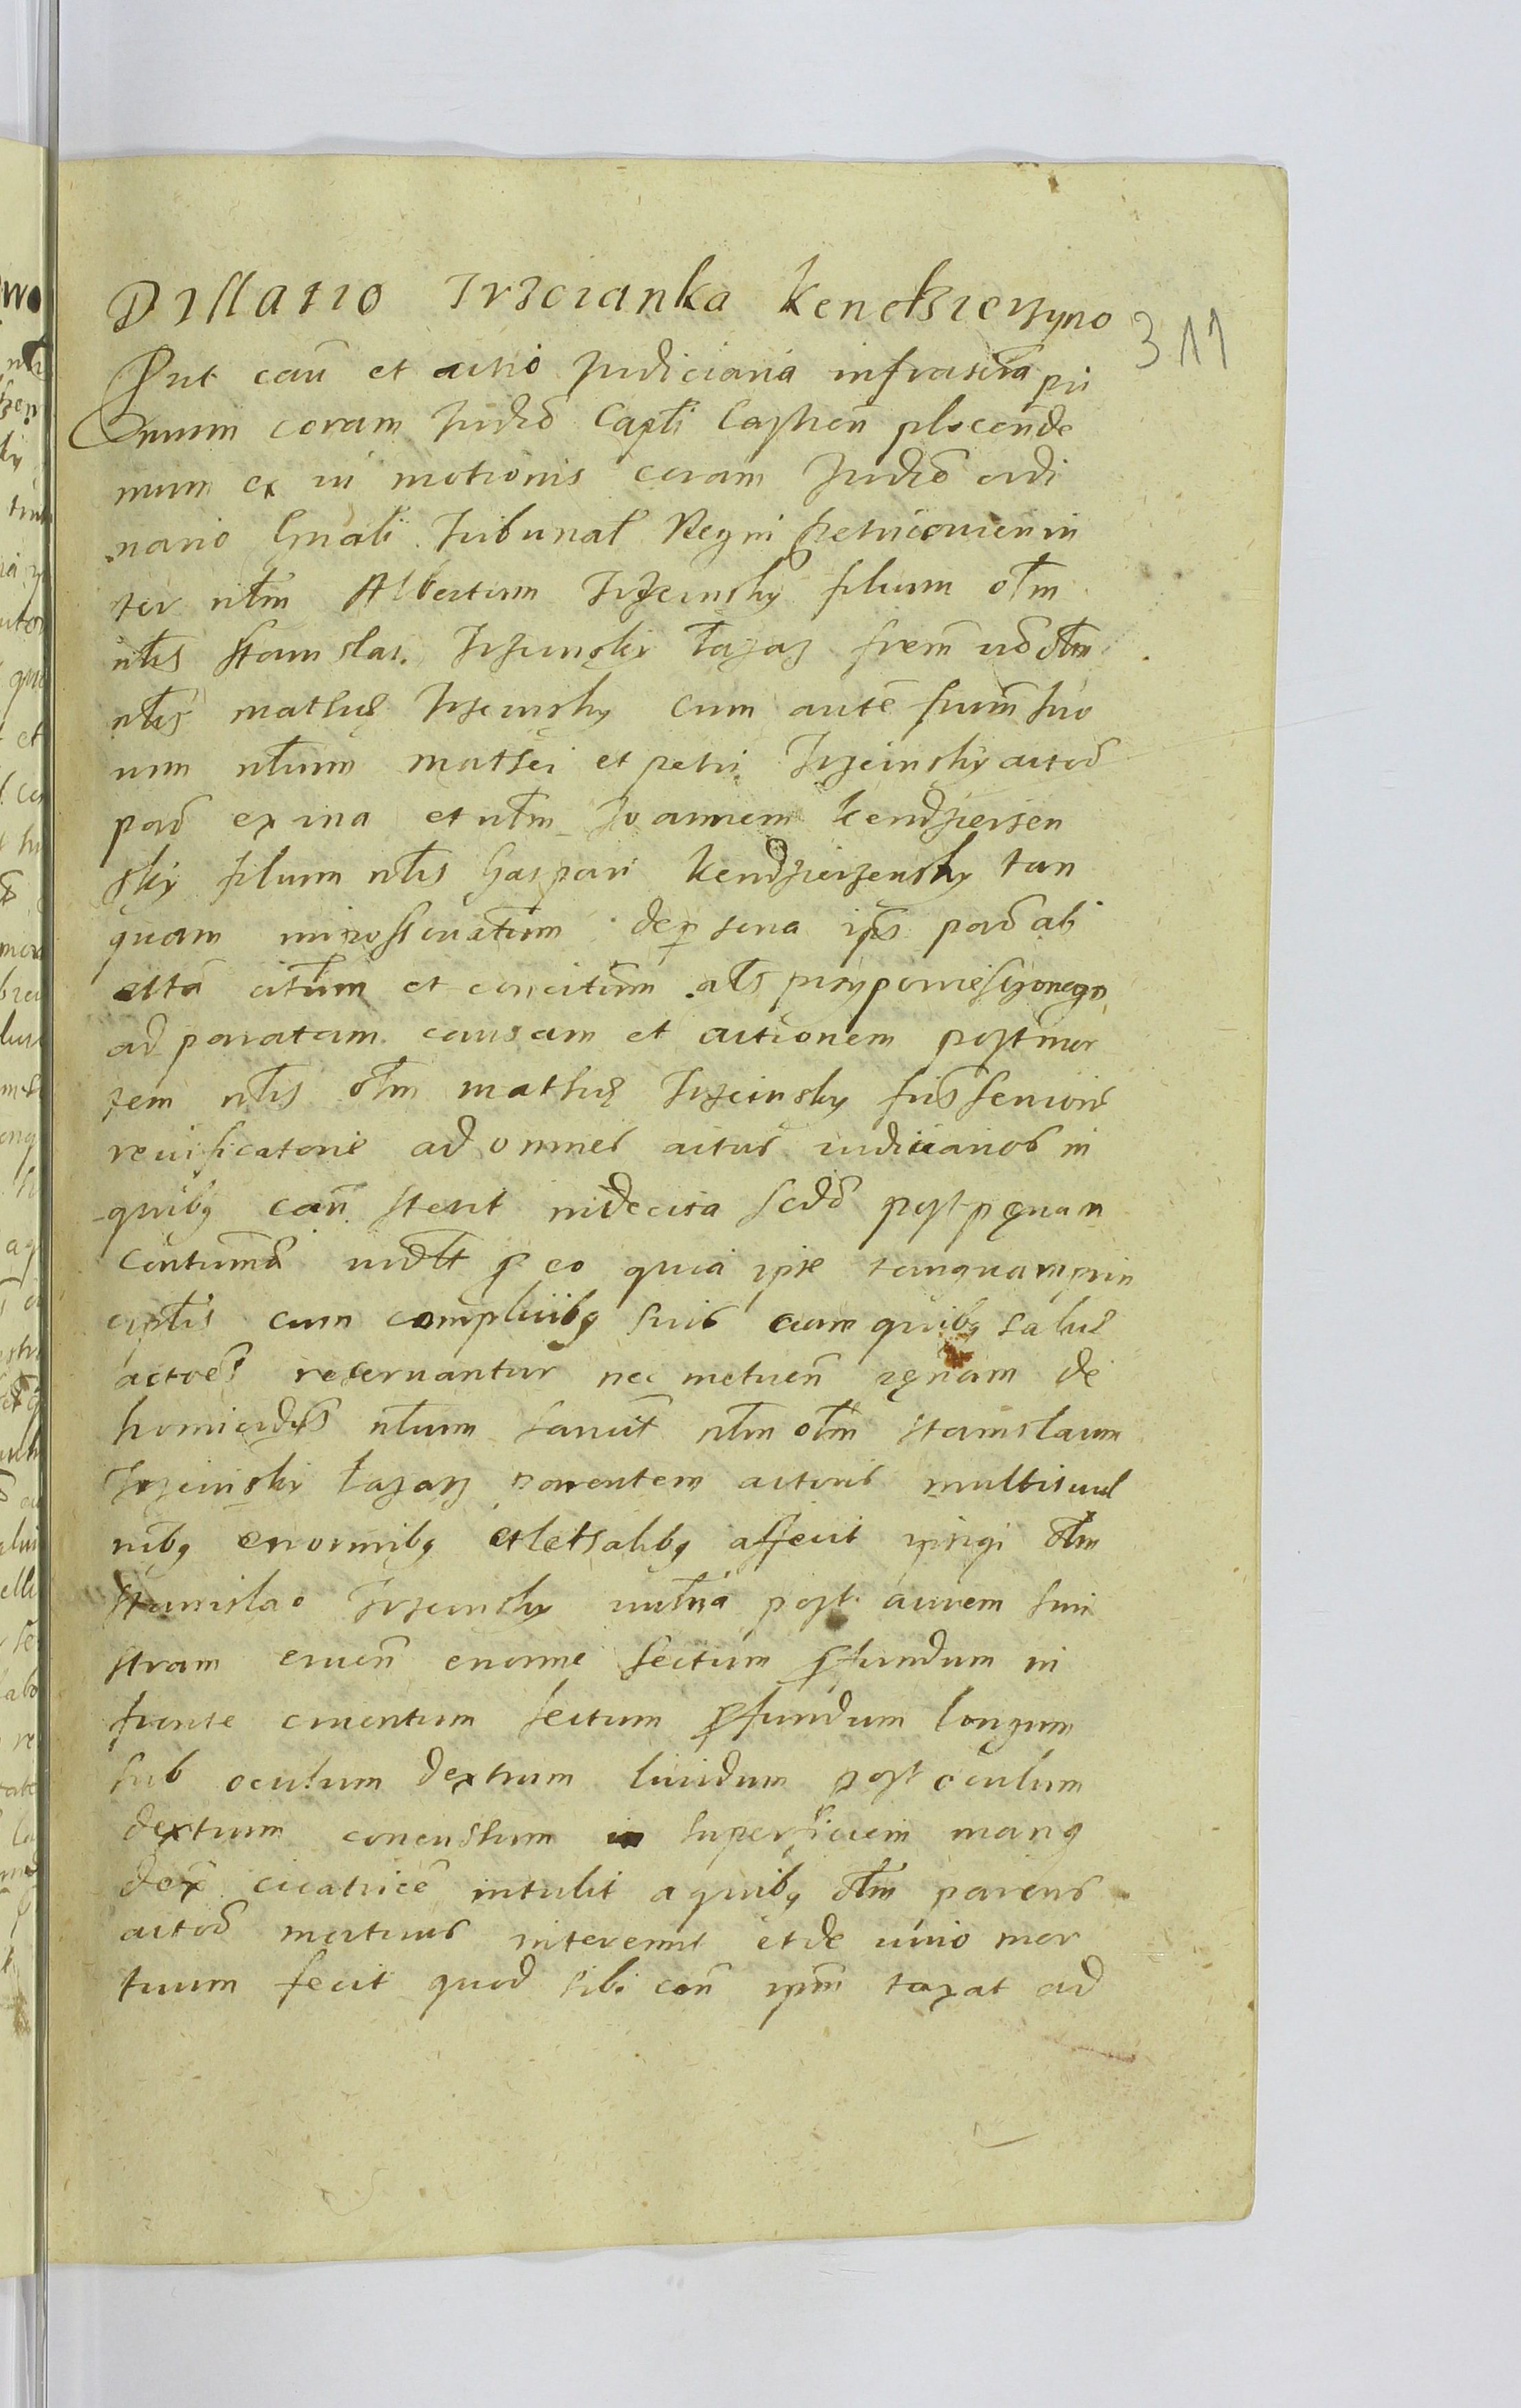 Dillatio Trzcianka Kendzierzyno
311
Put cau͂ et actio Judiciaria infrascr͂a pri
mum coram Judi͂o Capt͂i Castren͂ plocen͂ de
mum ex vi motionis coram Judi͂o ordi
nario Gn͂ali Tribunal Regni Petricovien in
ter nt͂m Albertum Trzcinsky filium ot͂m
nt͂is Stanislai Trzcinski łazaz frem͂ vo ot͂m
nt͂is mathie Trzcinsky cum aut͂e frum͂ suo
rum nt͂ium mathei et petri Trzcinsky acto͂
par͂ ex una et nt͂m Joannem kendzierzen
sky filium nt͂is Gaspari kendzierzensky tan
quam inpossessionatum de persona ips͂ par͂ ab
altā citatum et concitum al͂s przypowiesczonego
ad paratam causam et actionem post mor
tem nt͂is ot͂m mathię Trzcinsky fris͂ senioris
reuificatorie ad omnes actus iudiciarios in
quibꝫ cau͂ sterit indecisa sed͂ post pęnam
contuma͂ vidl͂t ꝑ eo quia ipse tanquam prin
cipl͂is cum complicibꝫ suis cum quibꝫ saluę
actoe͂s reseruantur nec metuen͂ pęnam de
homicidys͂ nt͂ium sancit͂ nt͂m ot͂m Stanislaum
Trzcinski łazaz parentem actoris multis vul
nibꝫ enormibꝫ et letsalibꝫ affecit ipsigꝫ ot͂m
Stanislao Trzcinsky vuln͂a post aurem sini
stram cruen͂ enorme sectum ꝓfundum in
fronte cruentum sectum ꝓfundum longum
sub oculum dextrum liuidum post oculum
dextrum concussum in superficiem manꝫ
dex͂ cicatrice͂ intulit a quibꝫ ot͂m parens
acto͂ mortuus interemit et de viuo mor
tuum fecit quod sibi con͂ ipm͂ taxat ad